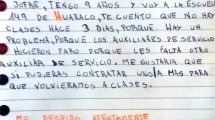 JOFRE, TENGO 9 AÑOS Y VOY A LA ESCUELA
149 DE HUARALO, TE CUENTO QUE NO HAY
CLASES HACE 3 DIAS, PORQUE HAY UN
PROBLEMA, PORQUE LOS AUXILIARES DE SERVICIO
HICIERON PARO PORQUE LES FALTA OTRO
AUXILIAR DE SERVICIO. ME GUSTARIA QUE
SI PUDIERAS CONTRATAR UNO/A MAS PARA
QUE VOLVIERAMOS A CLASES.
ME DESPIDO ATENTAMENTE